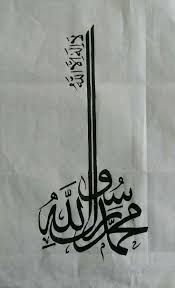 لا اله الا الله
محمد رسول الله